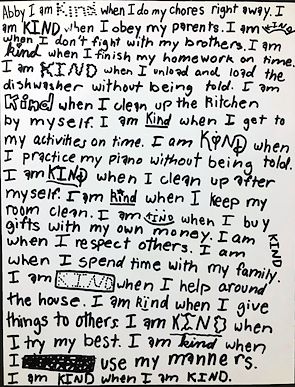 Abby I am Kind when I do my chores right away. I
am KIND when I obey my parents. I am KIND
when I don't fight with my brothers. I am
kind when I finish my homework on time.
I am KIND when I unload and load the
dishwasher without being told. I am
Kind when I clean up the Kitchen
by myself. I am Kind when I get to
my activities on time. I am KIND when
I practice my piano without being told.
I am KIND when I clean up after
myself. I am kind when I keep my
room clean. I am KIND when I buy
gifts with my own money. I am KIND
when I respect others. I am
when I spend time with my family.
I am KIND when I help around
the house. I am kind when I give
things to others. I am KIND when
I try my best. I am kind when
I use my manners.
I am KIND when I am KIND.